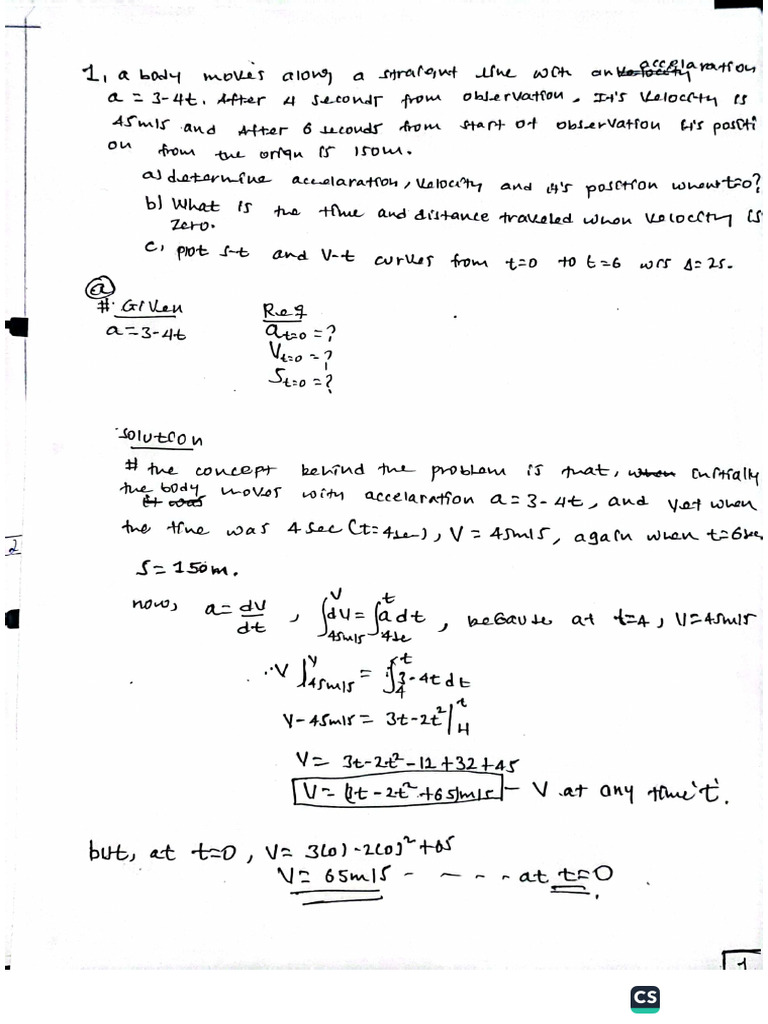 1, a body moves along a straight line with an accelaration
a = 3-4t. After 4 seconds from observation. It's velocity is
45m/s and After 6 seconds from start of observation it's positi
on from the origin is 150m.
a) determine accelaration, velocity and it's position when t=0?
b) What is the time and distance traveled when velocity is
zero.
c, plot s-t and v-t curves from t=0 to t=6 wrs Δ=2s.
(a)
# Given Req
a=3-4t a t=0 = ?
V t=0 = ?
S t=0 = ?
solution
# the concept behind the problem is that, initially
the body moves with accelaration a=3-4t, and yet when
the time was 4sec (t=4sec), V=45m/s, again when t=6sec
2
S=150m.
now, a = dv/dt , ∫_45m/s^V dv = ∫_4se^t a dt , because at t=4, V=45m/s
∴ V ]_45m/s^V = ∫_4^t 3-4t dt
V-45m/s = 3t-2t² |_4^t
V = 3t-2t²-12+32+45
V = (3t-2t²+65)m/s - V at any time 't'.
but, at t=0, V= 3(0)-2(0)²+65
V= 65m/s - - - - at t=0.
1
CS